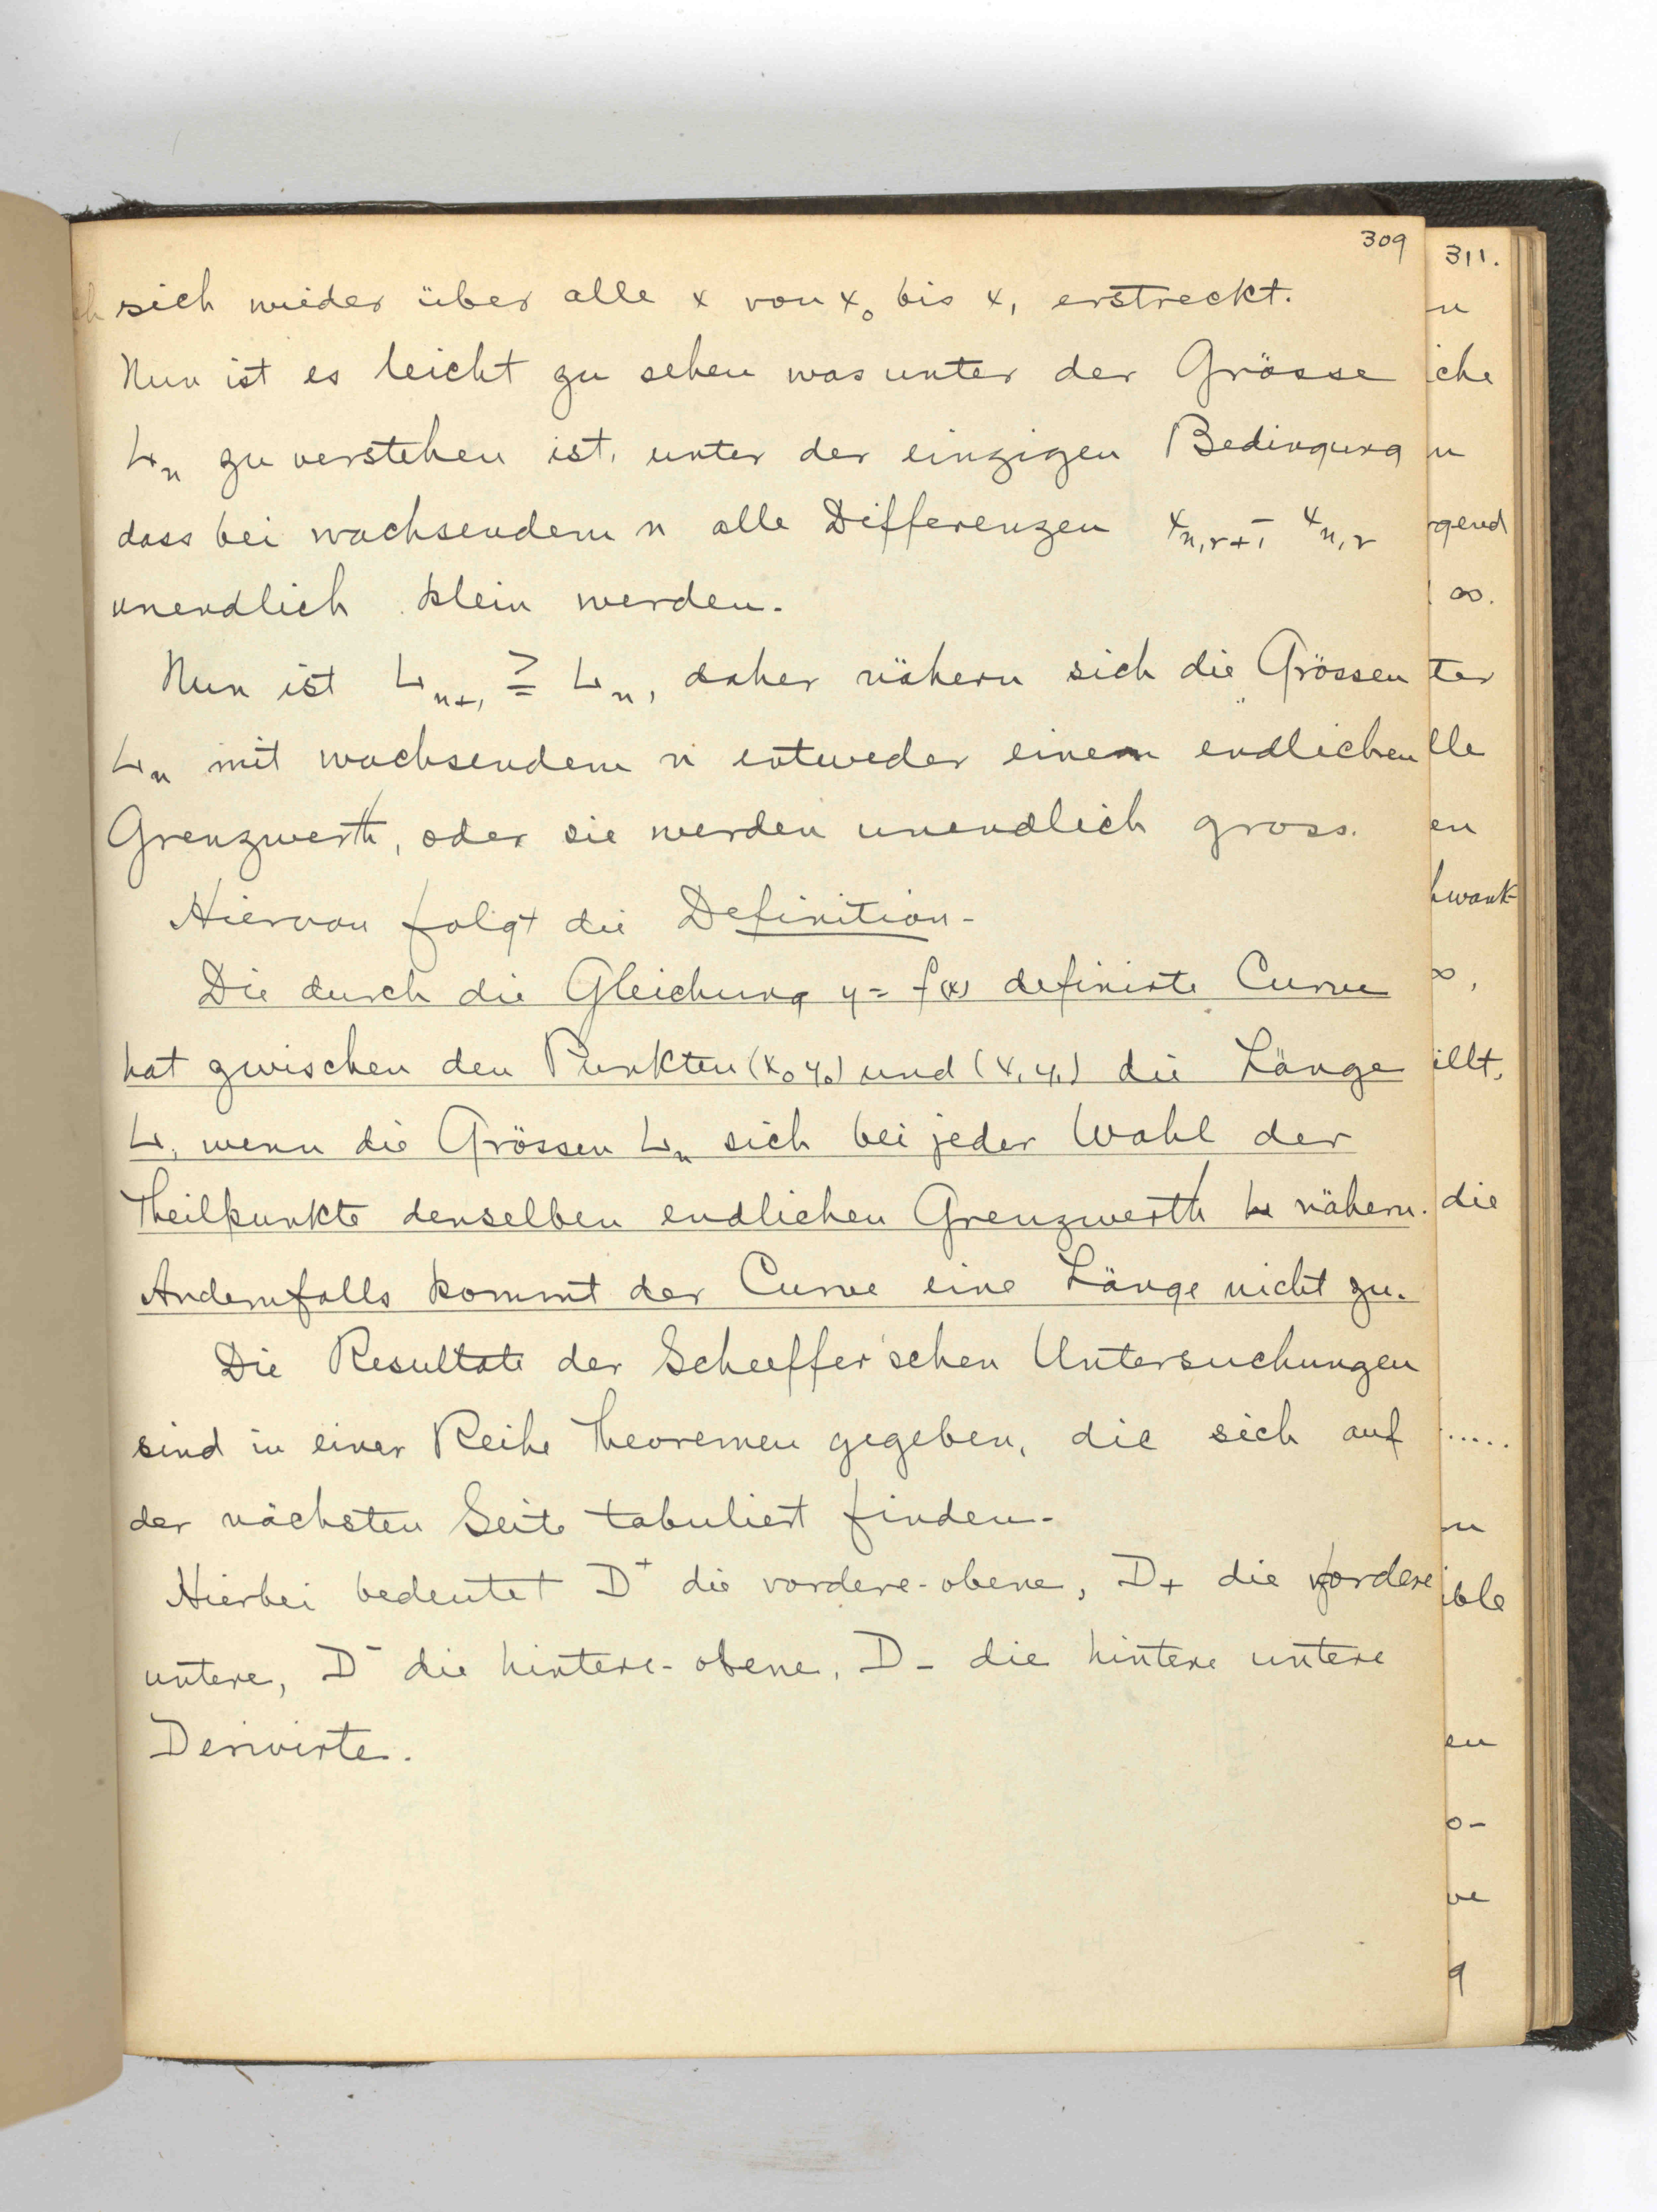 309
sich wieder über alle x von x₀ bis x₁ erstreckt.
Nun ist es leicht zu sehen was unter der Grösse
Lₙ zu verstehen ist, unter der einzigen Bedingung
dass bei wachsendem n alle Differenzen xₙ,ᵣ₊₁ - xₙ,ᵣ
unendlich klein werden.
Nun ist Lₙ₊₁ ≧ Lₙ, daher nähern sich die Grössen
Lₙ mit wachsendem n entweder einem endlichen
Grenzwerth, oder sie werden unendlich gross.
Hiervon folgt die Definition-
Die durch die Gleichung y = f(x) definirte Curve
hat zwischen den Punkten (x₀y₀) und (x₁y₁) die Länge
L, wenn die Grössen Lₙ sich bei jeder Wahl der
Theilpunkte denselben endlichen Grenzwerth L nähern.
Andernfalls kommt der Curve eine Länge nicht zu.
Die Resultate der Scheeffer'schen Untersuchungen
sind in einer Reihe Theoremen gegeben, die sich auf
der nächsten Seite tabuliert finden-
Hierbei bedeutet D⁺ die vordere-obene, D₊ die vordere
untere, D⁻ die hintere-obene, D₋ die hintere untere
Derivirte.
311.
n
iche
n
gend
∞.
ter
lle
en
hwank-
∞,
illt,
die
.....
n
ible
en
o-
ve
g